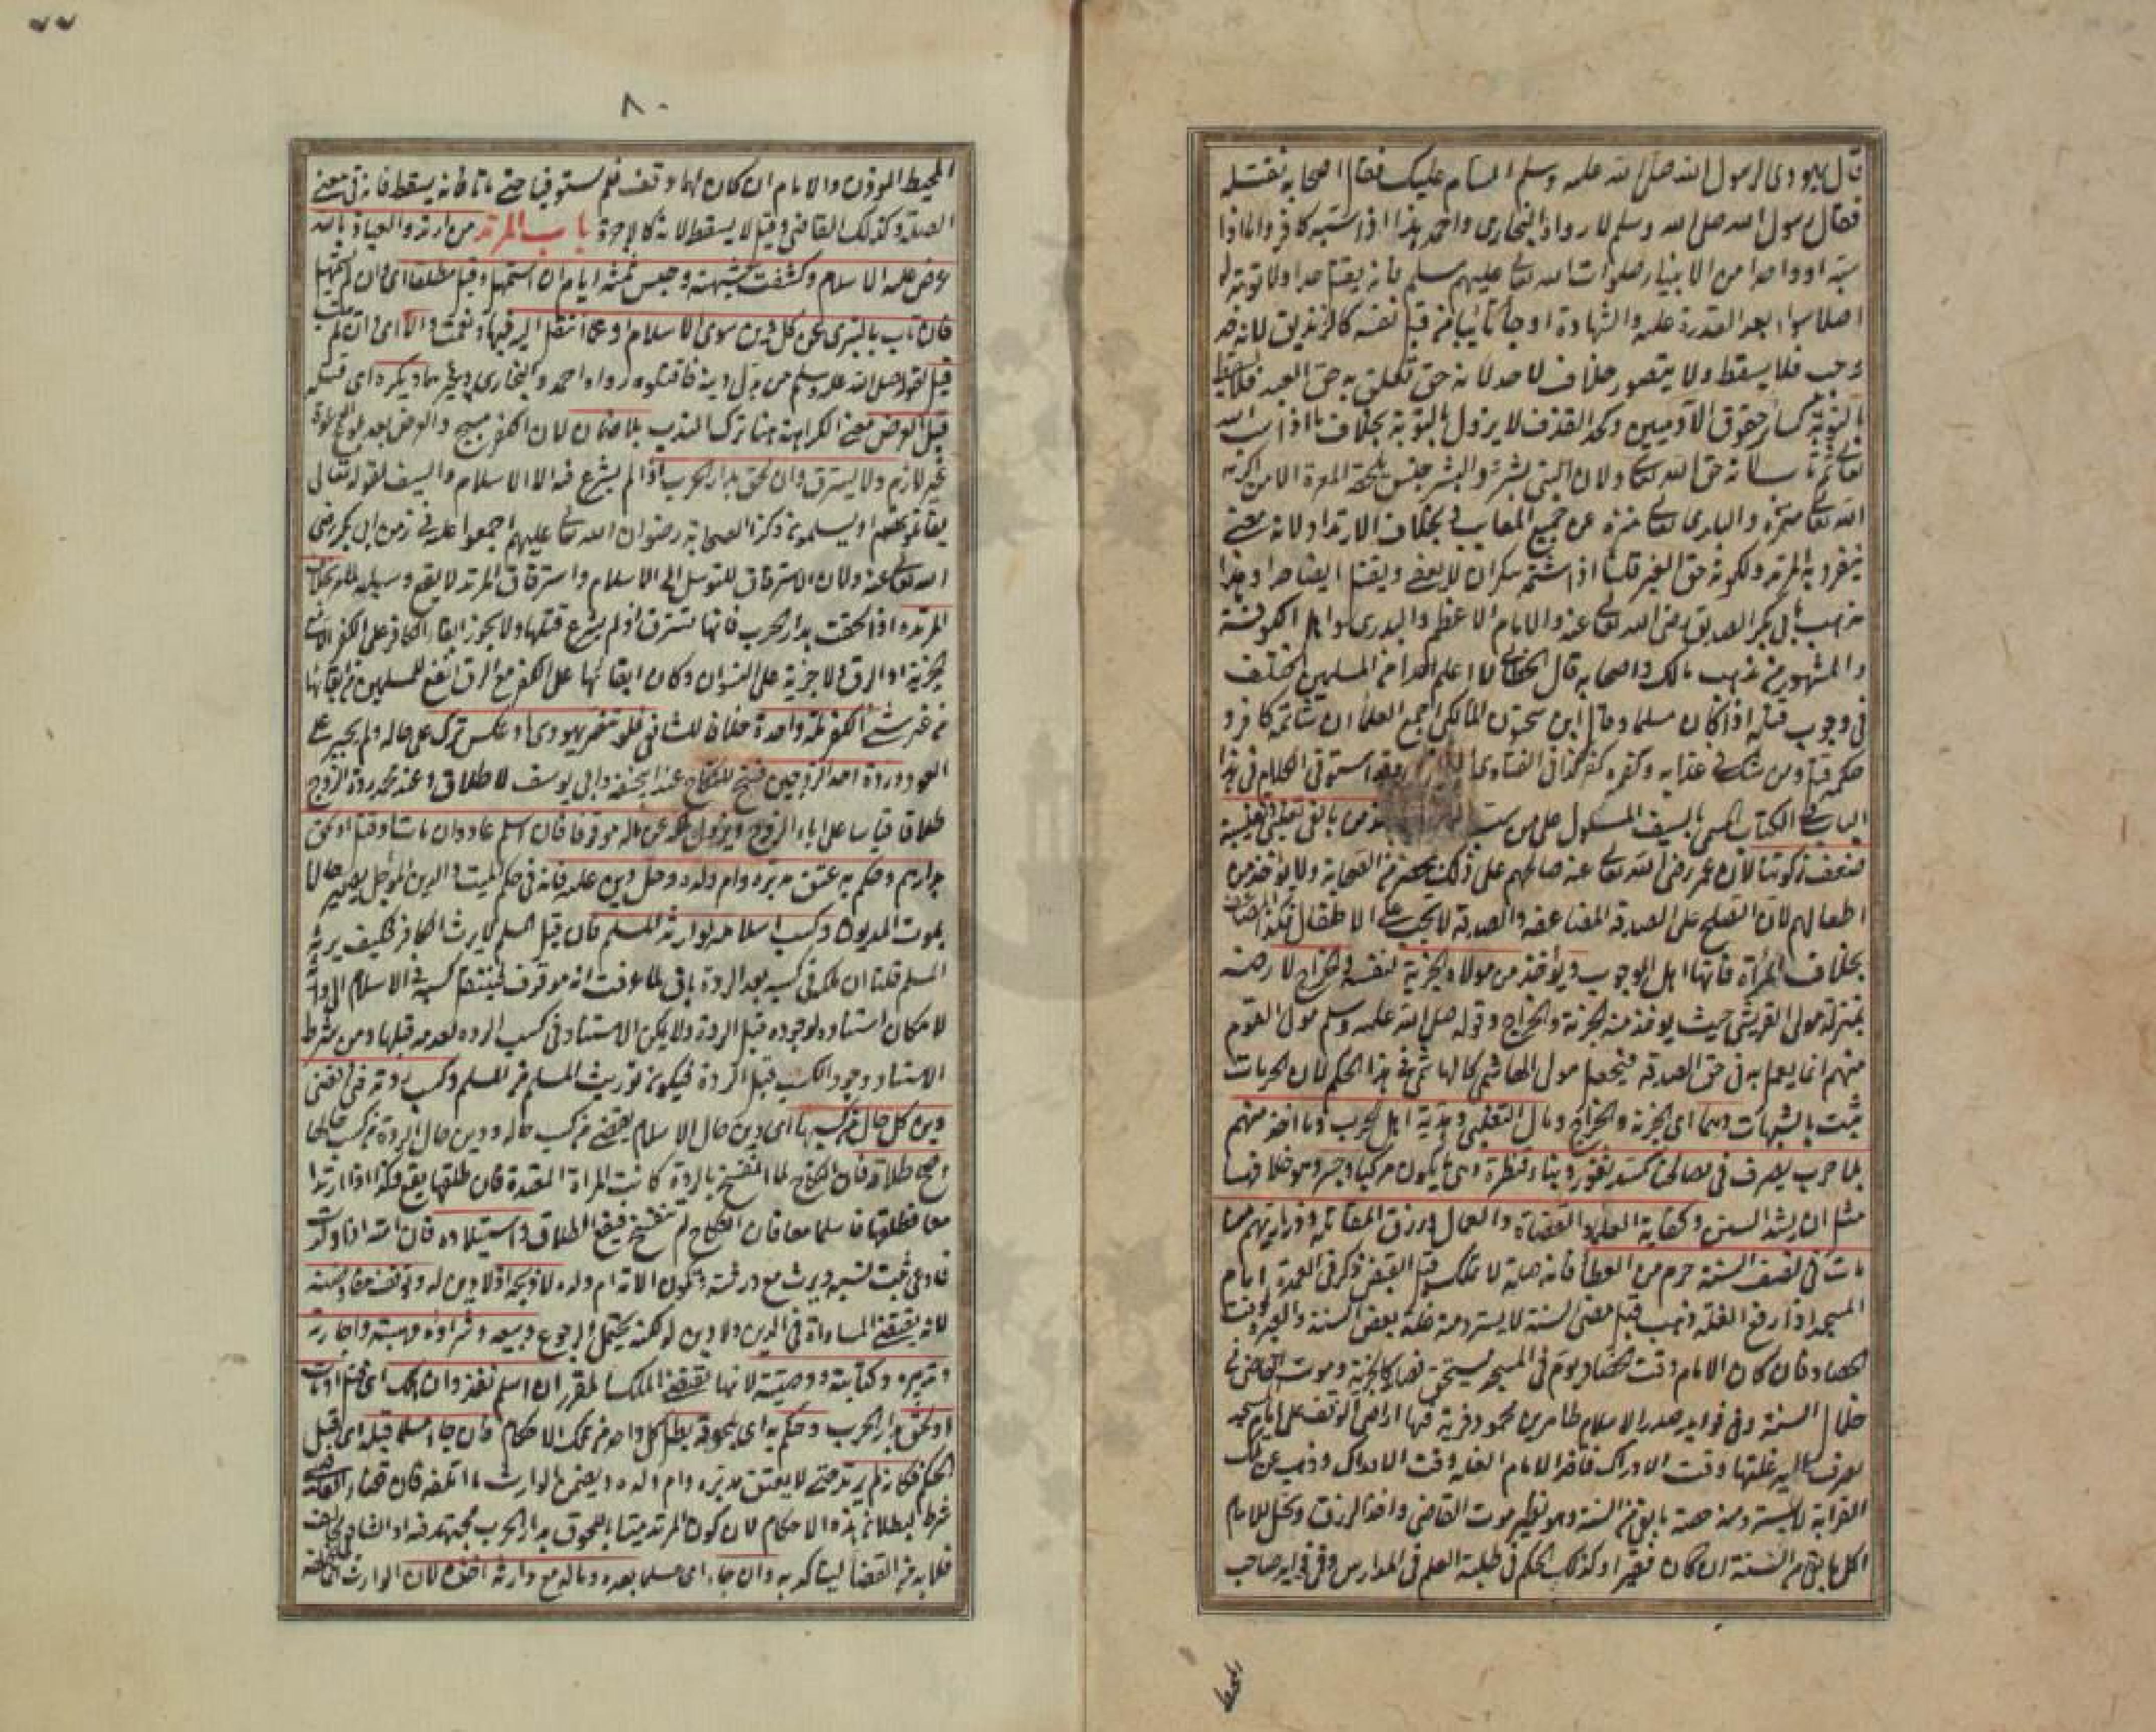 قال يهودى لرسول الله صلى الله عليه وسلم السام عليك فقال اصحابه نقتله
فقال رسول الله صلى الله وسلم لا رواه البخارى واحمد هذا اذا سبه كافر واما اذا
سبه او واحدا من الانبياء صلوات الله تعالى عليهم مسلم فانه يقتل حدا ولا توبة له
اصلا سواء بعد القدرة عليه والشهادة او جاء تائبا من قبل نفسه كالزنديق لانه حد
وجب فلا يسقط ولا يتصور خلاف لاحد لانه حق تعلق به حق العبد فلا يسقط
بالتوبة كسائر حقوق الآدميين وكحد القذف لا يزول بالتوبة بخلاف ما اذا سب الله
تعالى ثم تاب لانه حق الله تعالى ولان النبى بشر والبشر جنس يلحقه المعرة الا من اكرمه
الله تعالى والبارى تعالى منزه عن جميع المعايب بخلاف الارتداد لانه معنى
ينفرد به المرتد ولكونه حق الغير قلنا اذا شتمه سكران لا يعفى ويقتل ايضا حدا وهذا
مذهب ابى بكر الصديق رضى الله تعالى عنه والامام الاعظم والبدرى واهل الكوفة
والمشهور من مذهب مالك واصحابه قال الخطابى لا اعلم احدا من المسلمين اختلف
فى وجوب قتله اذا كان مسلما وقال ابن سحنون المالكى اجمع العلماء ان شاتمه كافر و
حكمه القتل ومن شك فى عذابه وكفره كفر كذا فى الفتاوى وقد استوفى الكلام فى هذا
الباب فى الكتاب المسمى بالسيف المسلول على من سب
ضعف زكوتنا لان عمر رضى الله تعالى عنه صالحهم على ذلك بمحضر من الصحابة ولا يؤخذ من
اطفالهم لان الصلح على الصدقة المضاعفة والصدقة لا تجب على الاطفال فكذا المضاعف
بخلاف المرأة فانها اهل الوجوب ويؤخذ من مولاه الجزية لنفسه والخراج لارضه
بمنزلة مولى القريشى حيث يوخذ منه الجزية والخراج وقوله صلى الله عليه وسلم مولى القوم
منهم انما يعمل به فى حق الصدقة فيجعل مولى الهاشمى كالهاشمى فى هذا الحكم لان الحرمات
تثبت بالشبهات وهما اى الجزية والخراج ومال التغلبى وهدية اهل الحرب وما اخذ منهم
بلا حرب يصرف فى مصالحنا كسد ثغور وبناء قنطرة وجسر
وكفاية العلماء والقضاة والعمال ورزق المقاتلة وذراريهم ومن
مات فى نصف السنة حرم من العطاء فانه صلة لا تملك قبل القبض ذكر فى العمدة امام
المسجد اذا رفع الغلة وذهب قبل مضى السنة لا يسترد منه غلة بعض السنة والعبرة لوقت
الحصاد فان كان الامام وقت الحصاد يؤم فى المسجد يستحق فصار كالجزية وموت القاضى فى
خلال السنة وفى فوايد صدر الاسلام طاهر بن محمود قرية فيها اراضى الوقف على امام مسجد
يصرف اليه غلتها وقت الادراك فاخذ الامام الغلة وقت الادراك وذهب عن تلك
القرية لا يسترد منه حصة ما بقى من السنة وهو نظير موت القاضى واخذ الرزق ويحل للامام
اكل ما بقى من السنة ان كان فقيرا وكذلك الحكم فى طلبة العلم فى المدارس وفى فوايد صاحب
المحيط
٨٠
المحيط الموذن والامام ان كان لهما وقف فلم يستوفيا حتى ماتا فانه يسقط فانه فى معنى
الصلة وكذلك القاضى وقيل لا يسقط لانه كالاجرة باب المرتد من ارتد والعياذ بالله
عرض عليه الاسلام وكشفت شبهته وحبس ثلثة ايام ان استمهل وقيل مطلقا اى وان لم يستمهل
فان تاب بالتبرى عن كل دين سوى الاسلام او عما انتقل اليه فبها ونعمت والا اى وان لم يتب
قتل لقوله صلى الله عليه وسلم من بدل دينه فاقتلوه رواه احمد والبخارى وغيرهما ويكره اى قتله
قبل العرض معنى الكراهة هنا ترك الندب بلا ضمان لان الكفر مبيح والعرض بعد بلوغ الدعوة
غير لازم ولا يسترق وان لحق بدار الحرب اذ لم يشرع فيه الا الاسلام والسيف لقوله تعالى
يقاتلونهم او يسلمون وكذا الصحابة رضوان الله تعالى عليهم اجمعوا عليه فى زمن ابى بكر رضى
الله تعالى عنه ولان الاسترقاق للتوسل الى الاسلام واسترقاق المرتد لا يقع وسيلة له بخلاف
المرتدة اذا لحقت بدار الحرب فانها تسترق اذ لم يشرع قتلها ولا يجوز ابقاء الكافر على الكفر الا مع
الجزية او الرق ولا جزية على النسوان وكان ابقائها على الكفر مع الرق انفع للمسلمين من ابقائها
من غير شئ الكفر ملة واحدة خلافا للشافعى فلو تنصر يهودى او عكس ترك على حاله ولم يجبر على
العود وردة احد الزوجين فسخ للنكاح عند ابى حنيفة وابى يوسف لا طلاق وعند محمد ردة الزوج
طلاق قياسا على اباء الزوج ويزول ملكه عن ماله موقوفا فان اسلم عاد وان مات او قتل او لحق
بدارهم وحكم به عتق مدبره وام ولده وحل دين عليه فانه فى حكم الميت والدين المؤجل يصير حالا
بموت المديون وكسب اسلامه لوارثه المسلم فان قيل المسلم لا يرث الكافر فكيف يرثه
المسلم قلنا ان ملكه فى كسبه بعد الردة باق لما عرفت انه موقوف فينتقل كسبه فى الاسلام الى وارثه
لامكان استناده لوجوده قبل الردة ولا يمكن الاستناد فى كسب الردة لعدمه قبلها ومن شرط
الاستناد وجود الكسب قبل الردة فيكون توريث المسلم من المسلم وكسب ردته فئ لنا وقضى
دين كل حال من كسبها اى دين حال الاسلام يقضى من كسب حاله ودين حال الردة من كسب حالها
وصح طلاقه فان النكاح لما انفسخ بالردة كانت المرأة معتدة فان طلقها يقع وكذا اذا ارتدا
معا فطلقها فاسلما معا فان النكاح لم ينفسخ فيقع الطلاق واستيلاده فان امته اذا ولدت
فادعى ثبت نسبه ويرث مع ورثته وتكون الامة ام ولد له لا ذبحه اذ لا دين له وتوقف مفاوضته
لانه يقتضى المساواة فى الدين ولا دين له لكنه يحتمل الرجوع وبيعه وشراؤه وهبته واجارته
وتدبيره وكتابته ووصيته لانها تقتضى الملك المقرر ان اسلم نفذ وان هلك اى قتل او مات
او لحق بدار الحرب وحكم به اى بلحوقه بطل كل واحد من تلك الاحكام فان جاء مسلما قبله اى قبل
الحكم فكانه لم يرتد حتى لا يعتق مدبره وام ولده ويضمن الوارث ما اتلفه فان قضاء القاضى
شرط لبطلان هذه الاحكام لان كون المرتد ميتا باللحوق بدار الحرب مجتهد فيه اذ الشافعى يخالف
فلا بد من القضاء ليتأكد به وان جاء اى مسلما بعده وماله مع وارثه اخذه لان الوارث